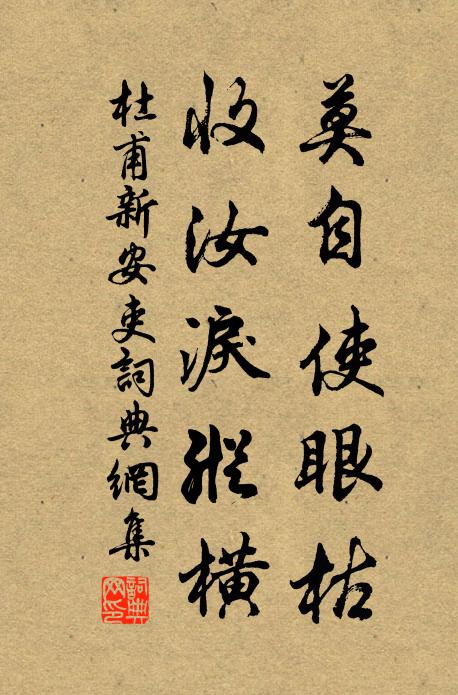 莫自使眼枯
收汝淚縱橫
杜甫新安吏詞典網集
詞典
网印